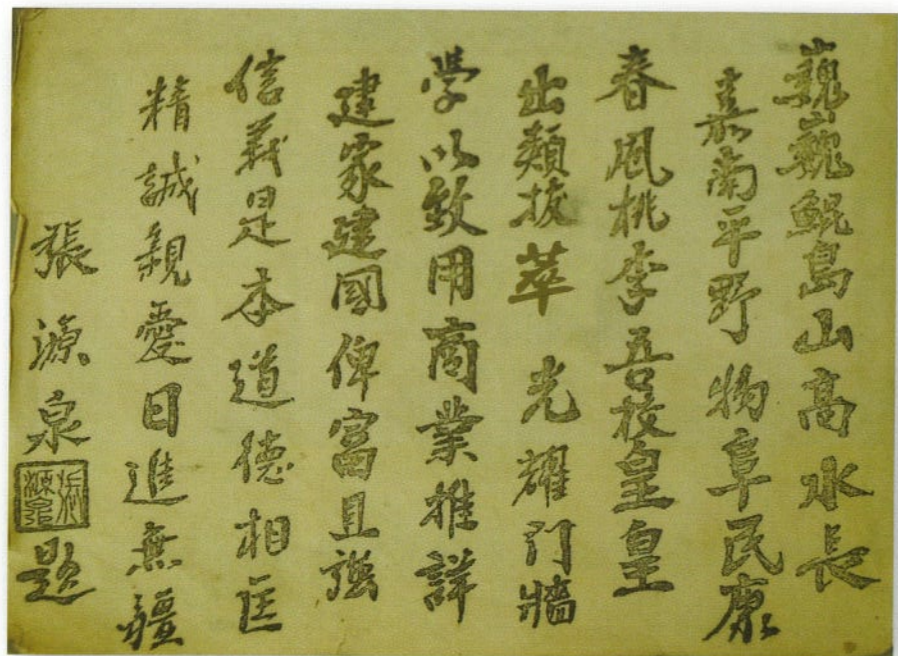 巍巍鯤島山高水長
嘉南平野物阜民康
春風桃李吾校皇皇
出類拔萃 光耀門牆
學以致用商業推詳
建家建國俾富且強
信義是本道德相匡
精誠親愛日進無疆
張源泉題
張源泉